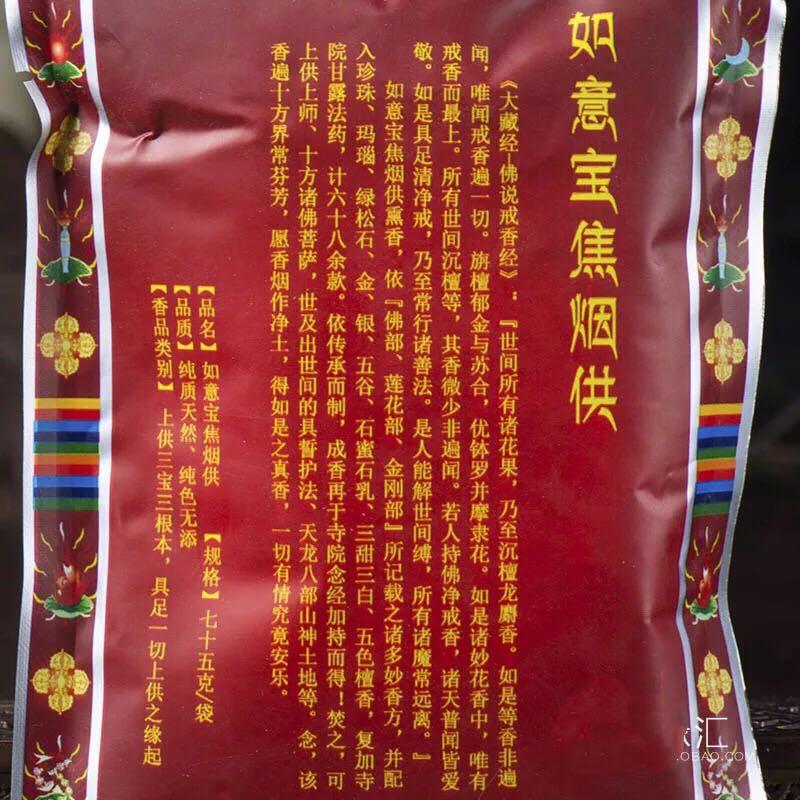 如意宝焦烟供
《大藏经—佛说戒香经》：『世间所有诸花果，乃至沉檀龙麝香。如是等香非遍
闻，唯闻戒香遍一切。旃檀郁金与苏合，优钵罗并摩隶花。如是诸妙花香中，唯有
戒香而最上。所有世间沉檀等，其香微少非遍闻。若人持佛净戒香，诸天普闻皆爱
敬。如是具足清净戒，乃至常行诸善法。是人能解世间缚，所有诸魔常远离。』
如意宝焦烟供熏香，依『佛部、莲花部、金刚部』所记载之诸多妙香方，并配
入珍珠、玛瑙、绿松石、金、银、五谷、石蜜石乳、三甜三白、五色檀香，复加寺
院甘露法药，计六十八余款。依传承而制，成香再于寺院念经加持而得！焚之，可
上供上师、十方诸佛菩萨，世及出世间的具誓护法、天龙八部山神土地等。念，该
香遍十方界常芬芳，愿香烟作净土，得如是之真香，一切有情究竟安乐。
【品名】如意宝焦烟供 【规格】七十五克/袋
【品质】纯质天然、纯色无添
【香品类别】上供三宝三根本，具足一切上供之缘起
汇
.OBAO.COM